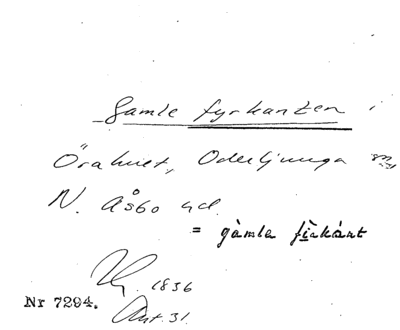 Gamle fyrkanten i
Örahult, Oderljunga sn,
N. Åsbo hd.
= gàmla fìrkànt
1836
Nr 7294.
Ant. 31